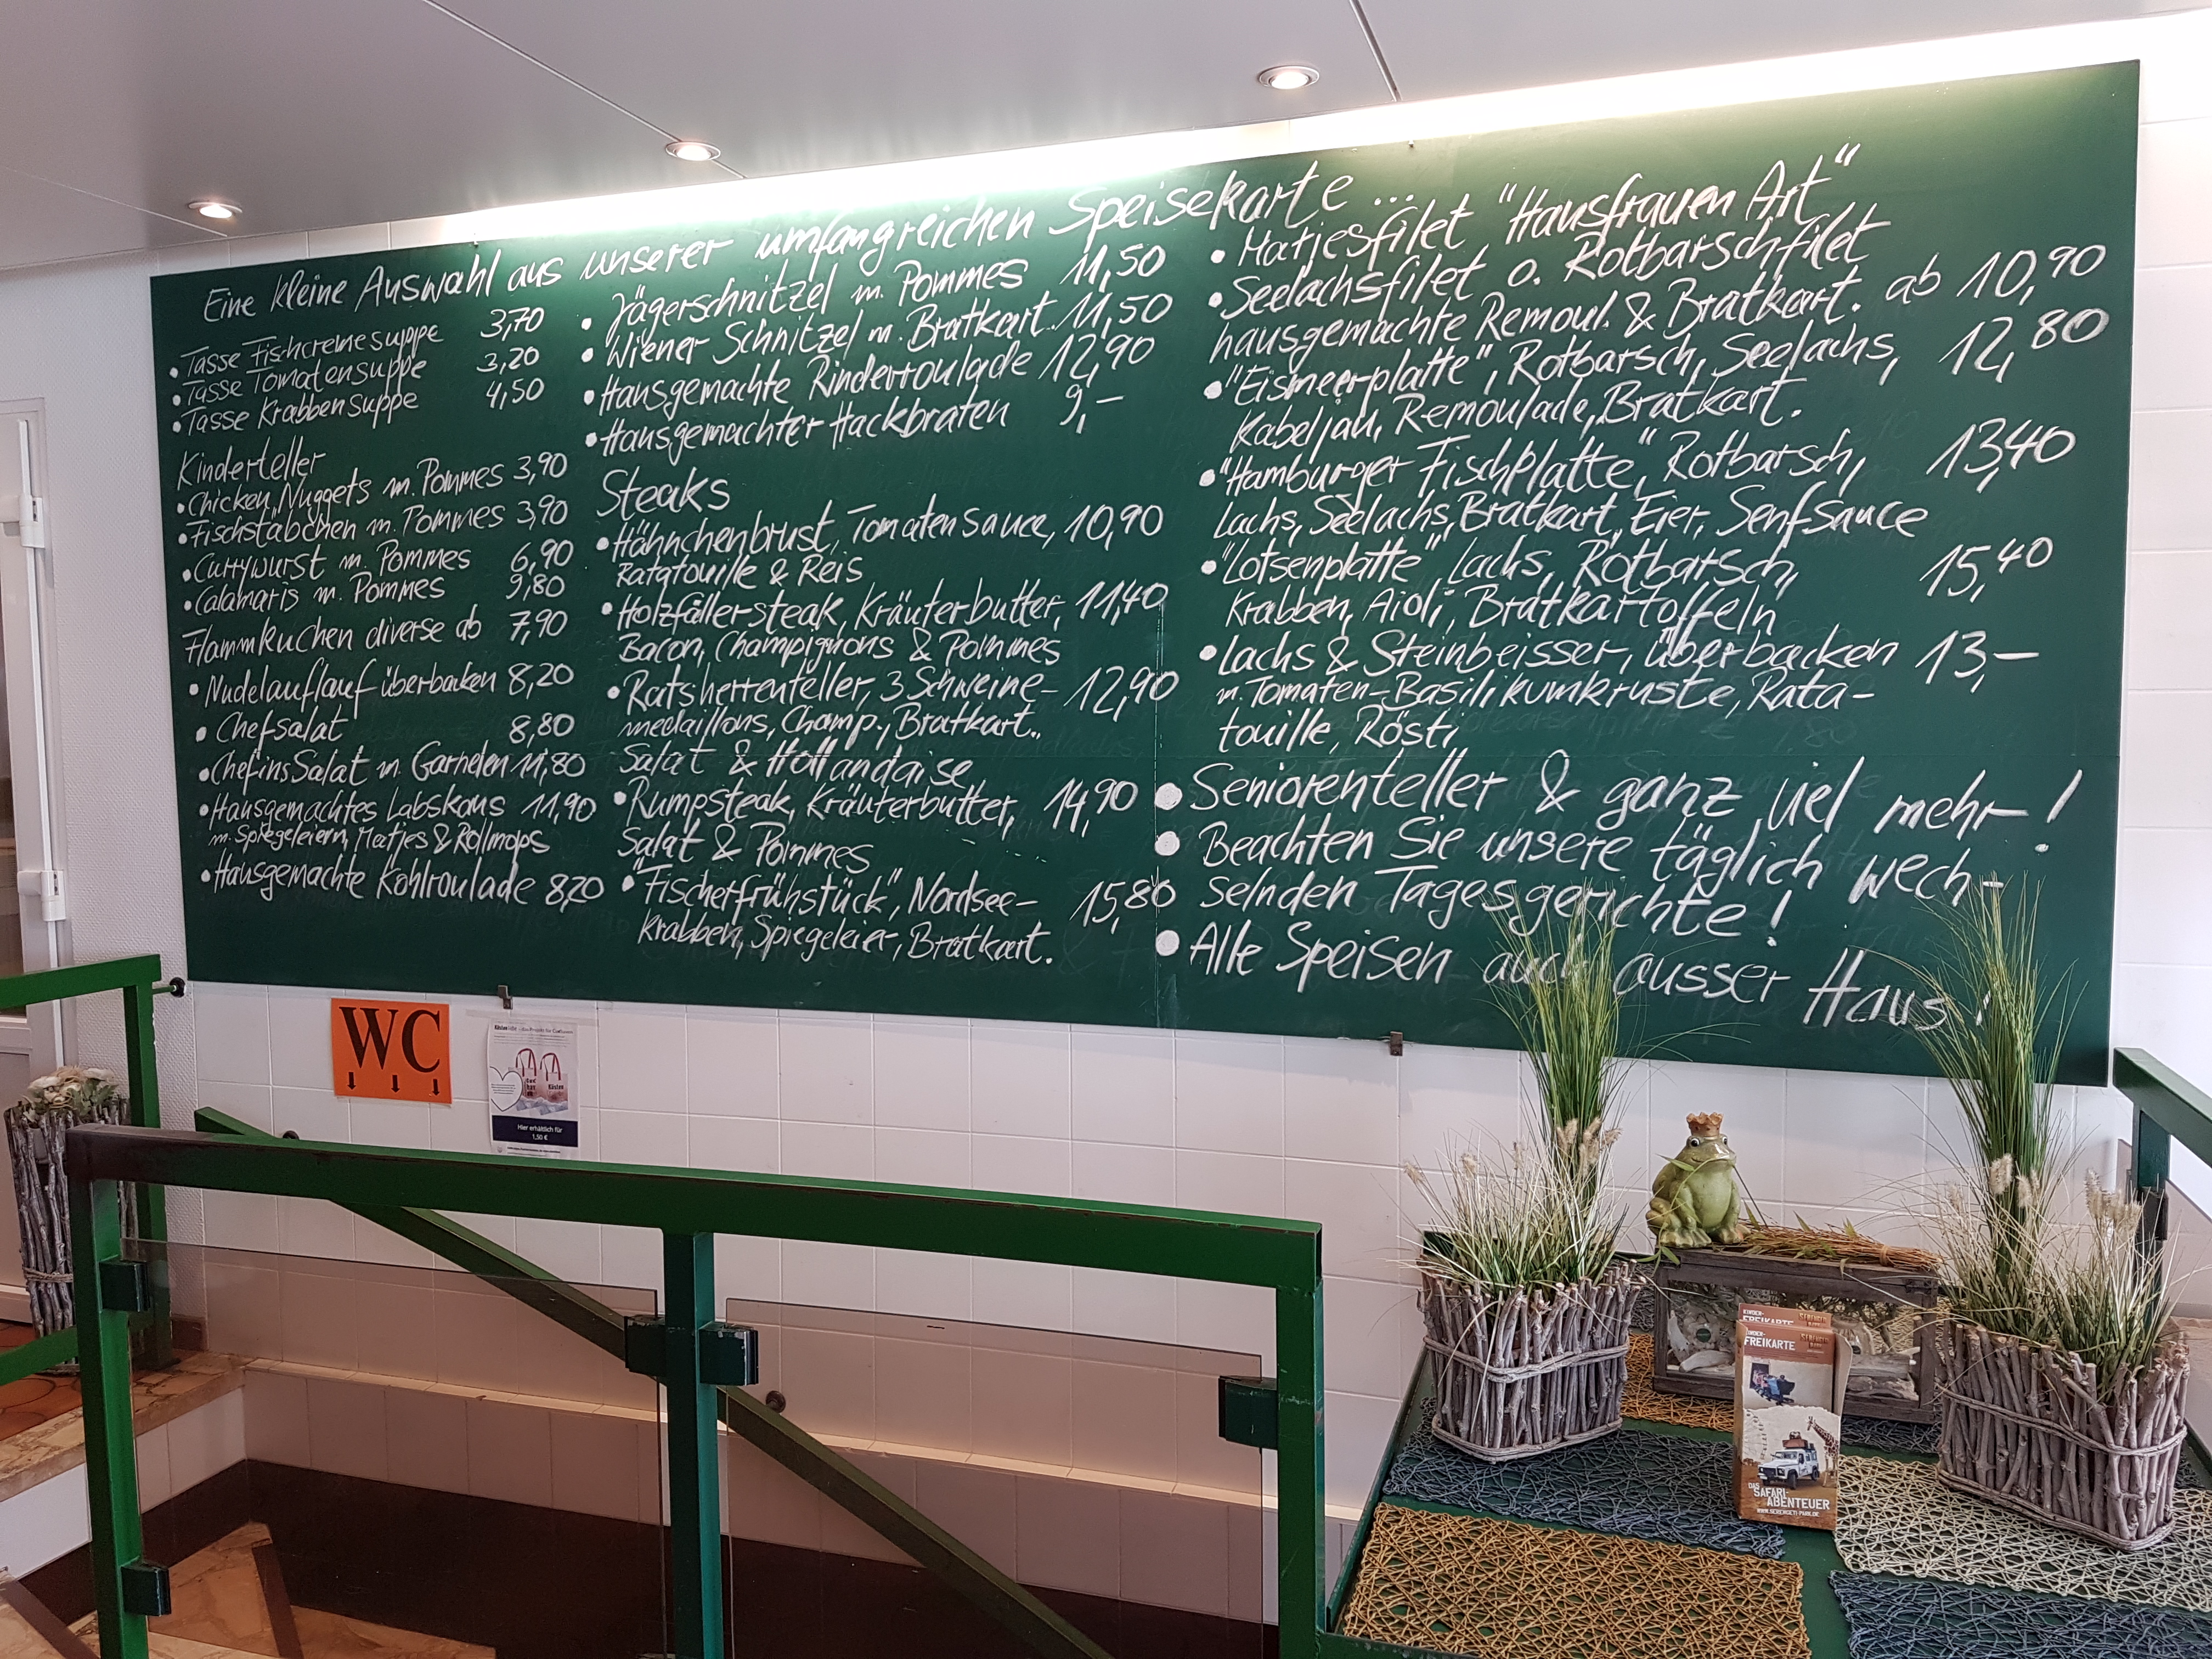 Eine kleine Auswahl aus unserer umfangreichen Speisekarte...
• Tasse Fischcremesuppe 3,70
• Tasse Tomatensuppe 3,20
• Tasse Krabbensuppe 4,50
Kinderteller
• Chicken Nuggets m. Pommes 3,90
• Fischstäbchen m. Pommes 3,90
• Currywurst m. Pommes 6,90
• Calamaris m. Pommes 9,80
Flammkuchen diverse ab 7,90
• Nudelauflauf überbacken 8,20
• Chefsalat 8,80
• Chefins Salat m. Garnelen 11,80
• Hausgemachtes Labskaus 11,90
m. Spiegeleiern, Matjes & Rollmops
• Hausgemachte Kohlroulade 8,20
• Jägerschnitzel m. Pommes 11,50
• Wiener Schnitzel m. Bratkart. 11,50
• Hausgemachte Rinderroulade 12,90
• Hausgemachter Hackbraten 9,–
Steaks
• Hähnchenbrust, Tomatensauce, 10,90
Ratatouille & Reis
• Holzfällersteak, Kräuterbutter, 11,40
Bacon, Champignons & Pommes
• Ratsherrenteller, 3 Schweine- 12,90
medaillons, Champ., Bratkart.,
Salat & Hollandaise
• Rumpsteak, Kräuterbutter, 14,90
Salat & Pommes
• "Fischerfrühstück", Nordsee- 15,80
krabben, Spiegeleier, Bratkart.
• Matjesfilet "Hausfrauen Art"
• Seelachsfilet o. Rotbarschfilet
hausgemachte Remoul. & Bratkart. ab 10,90
• "Eismeerplatte", Rotbarsch, Seelachs, 12,80
Kabeljau, Remoulade, Bratkart.
• "Hamburger Fischplatte" Rotbarsch, 13,40
Lachs, Seelachs, Bratkart., Eier, Senfsauce
• "Lotsenplatte", Lachs, Rotbarsch, 15,40
Krabben, Aioli, Bratkartoffeln
• Lachs & Steinbeisser, überbacken 13,–
m. Tomaten-Basilikumkruste, Rata-
touille, Rösti
• Seniorenteller & ganz viel mehr!
• Beachten Sie unsere täglich wech-
selnden Tagesgerichte!
• Alle Speisen auch ausser Haus!
WC
Hier erhältlich für
1,50 €
KINDER-
FREIKARTE
DAS
SAFARI-
ABENTEUER
WWW.SERENGETI-PARK.DE